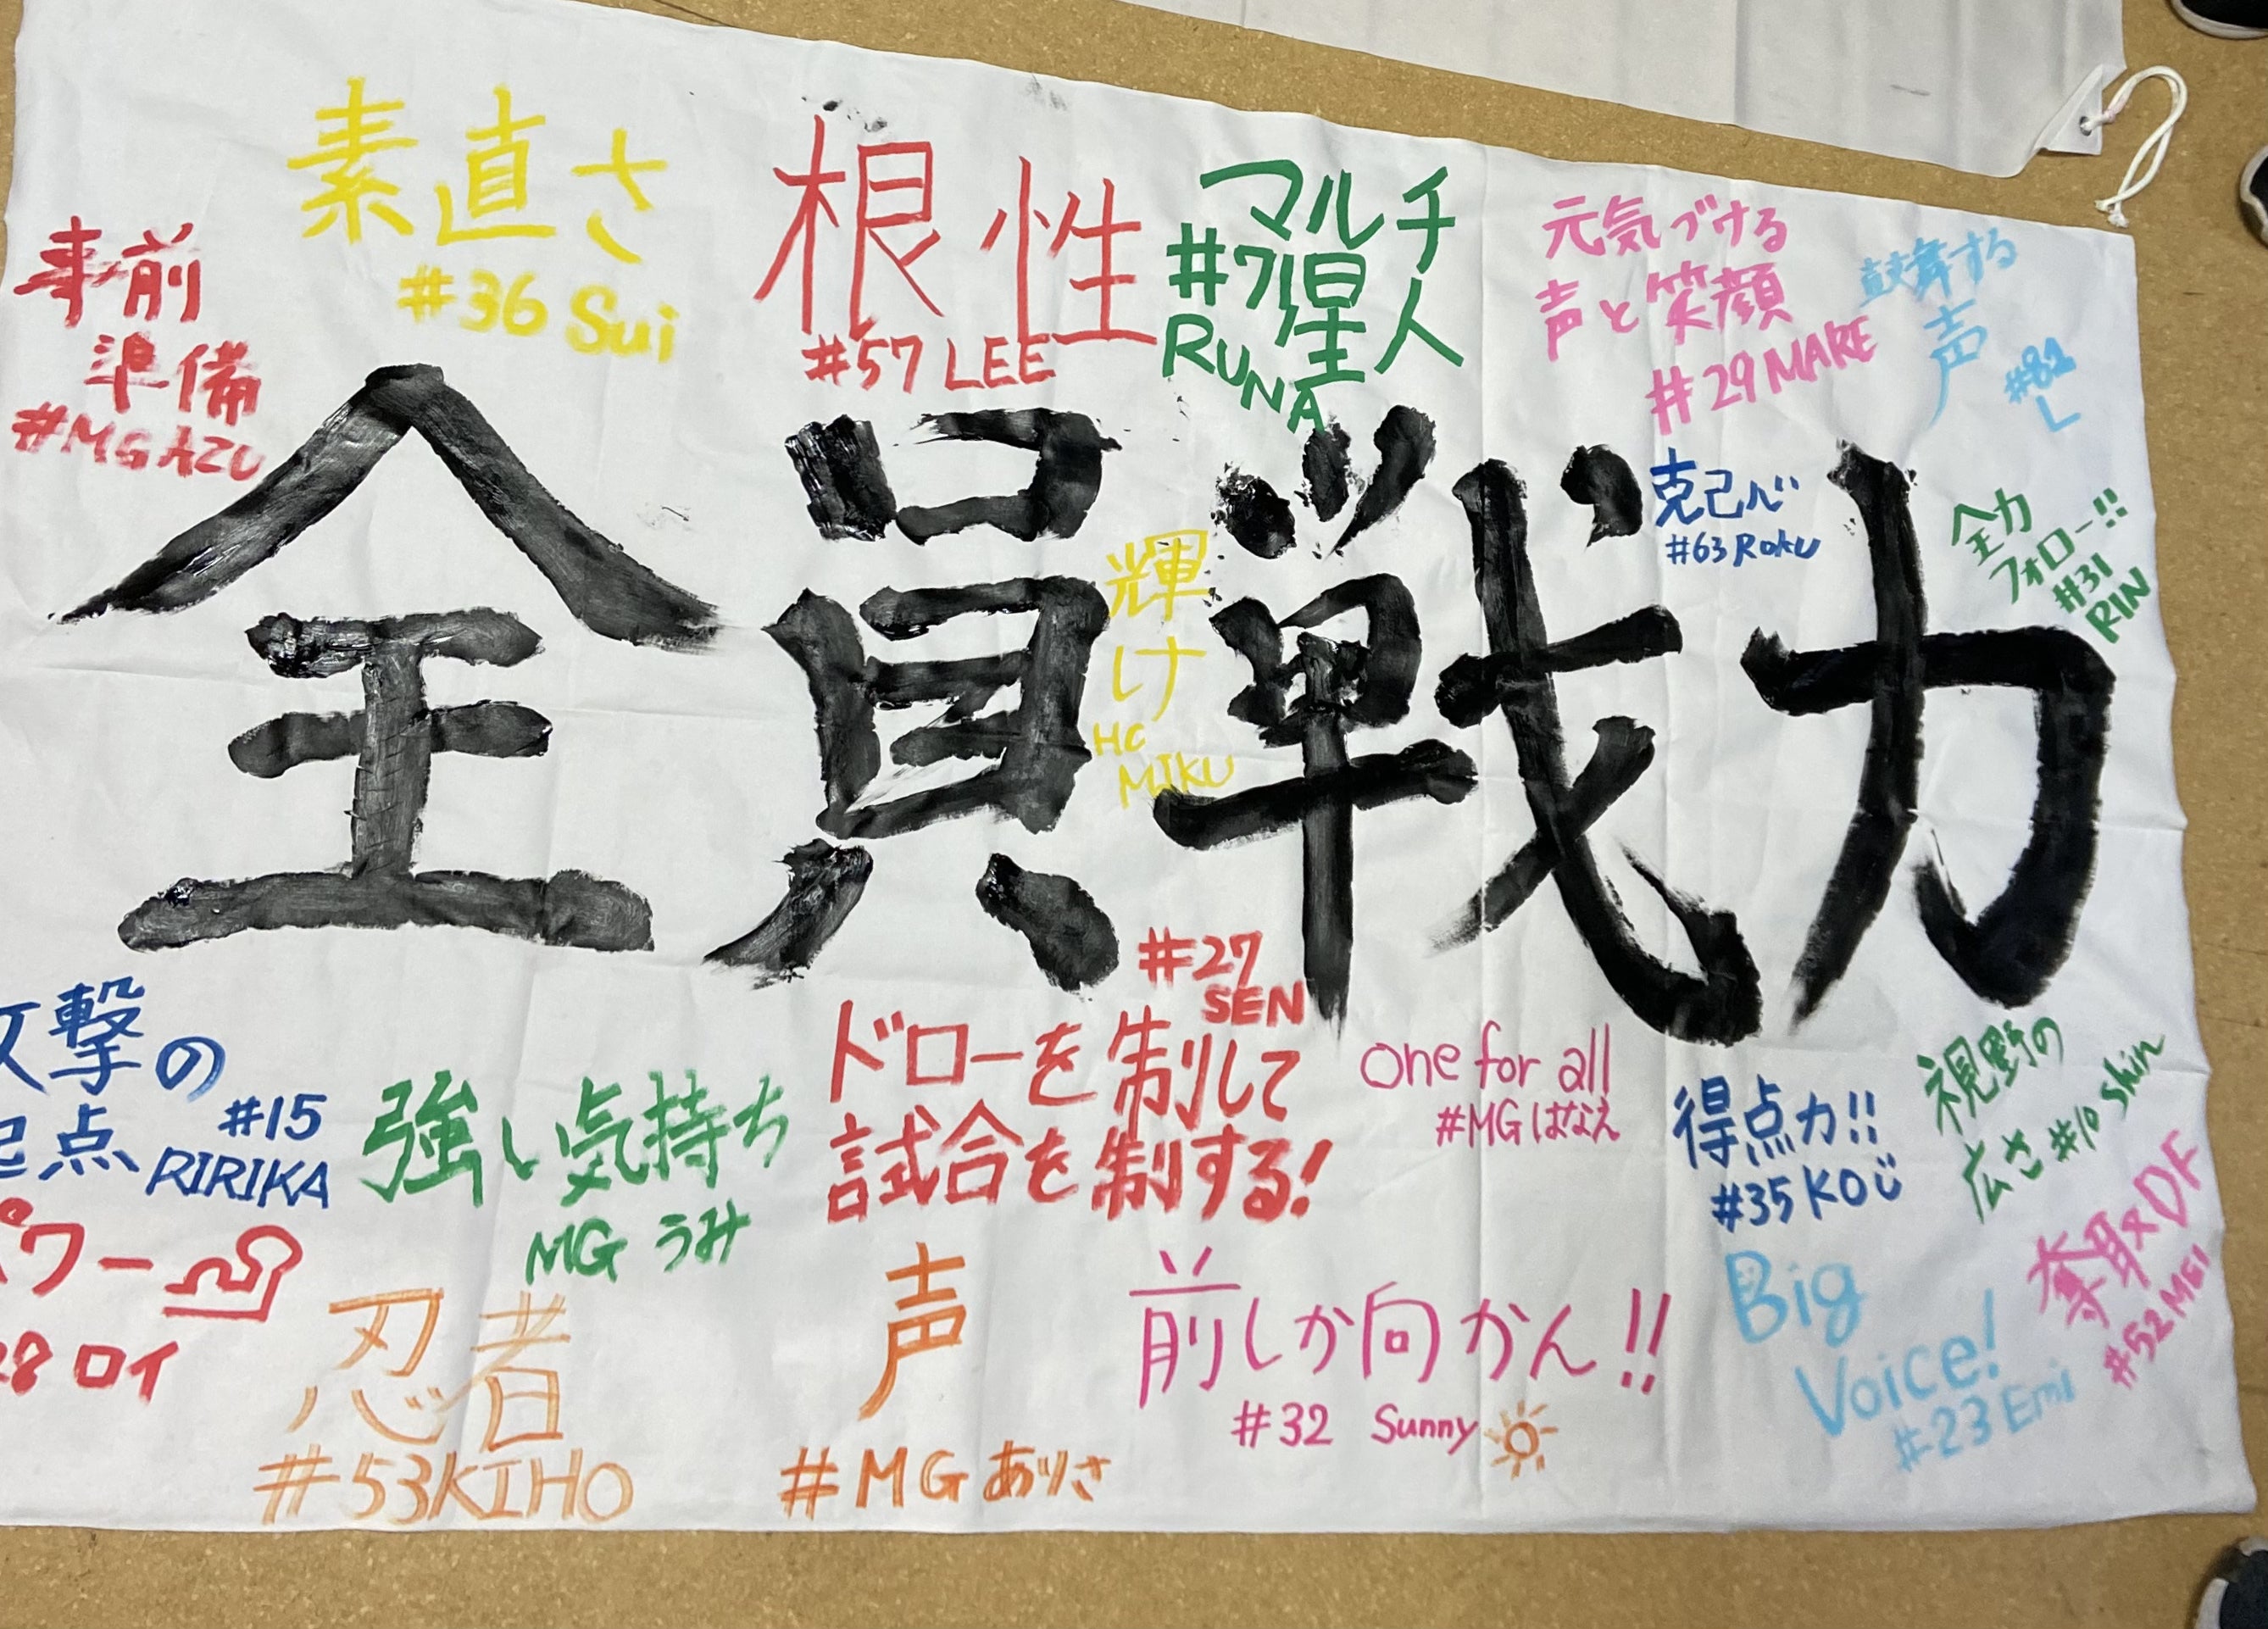 素直さ
#36 Sui
事前
準備
#MG AZU
根性
#57 LEE
マルチ
星人
#71
RUNA
元気づける
声と笑顔
#29 MARE
鼓舞する
声
#82
L
克己心
#63 Roku
全力
フォロー!!
#31
RIN
全員戦力
輝け
HC
MIKU
攻撃の
起点
#15
RIRIKA
強い気持ち
MG うみ
#27
SEN
ドローを制して
試合を制する!
one for all
#MG はなえ
得点力!!
#35 KOじ
視野の
広さ #10 Shin
パワー
28 ロイ
忍者
#53KIHO
声
#MG ありさ
前しか向かん!!
#32 Sunny
Big
Voice!
#23 Emi
奪取×DF
#52 MEI